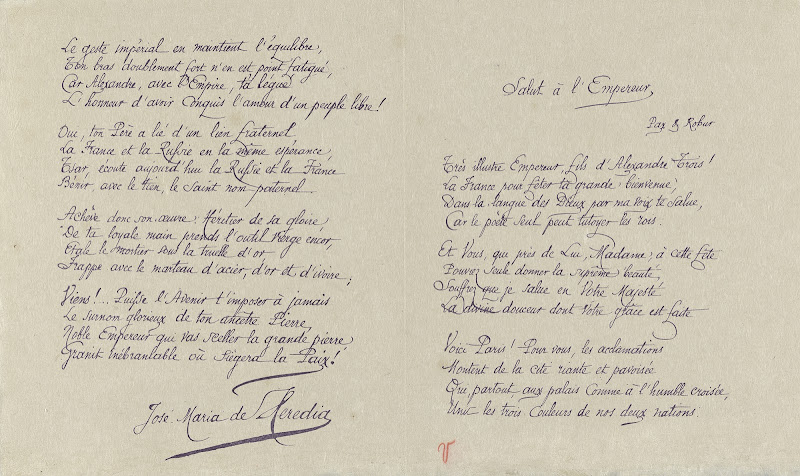 Salut à l'Empereur
Pax & Robur
Très illustre Empereur, fils d'Alexandre Trois!
La France, pour fêter ta grande bienvenue,
Dans la langue des Dieux par ma voix te salue,
Car le poète seul peut tutoyer les rois.
Et Vous, qui près de Lui, Madame, à cette fête
Pouviez seule donner la suprême beauté,
Souffrez que je salue en Votre Majesté
La divine douceur dont votre grâce est faite
Voici Paris! Pour vous, les acclamations
Montent de la cité riante et pavoisée
Qui, partout aux palais comme à l'humble croisée,
Unit les trois Couleurs de nos deux nations.
V
Le geste impérial en maintient l'équilibre,
Ton bras doublement fort n'en est point fatigué,
Car Alexandre, avec l'Empire, t'a légué
L'honneur d'avoir conquis l'amour d'un peuple libre!
Oui, ton Père a lié d'un lien fraternel
La France et la Russie en la même espérance,
Tsar, écoute aujourd'hui la Russie et la France
Bénir, avec le tien, le saint nom paternel.
Achève donc son œuvre. Héritier de sa gloire,
De ta loyale main prends l'outil vierge encor,
Étale le mortier sous la truelle d'or
Frappe avec le marteau d'acier, d'or et d'ivoire;
Viens!.. Puisse l'Avenir t'imposer à jamais
Le surnom glorieux de ton ancêtre Pierre,
Noble Empereur qui vas sceller la grande pierre,
Granit inébranlable où siègera la Paix!
José Maria de Heredia